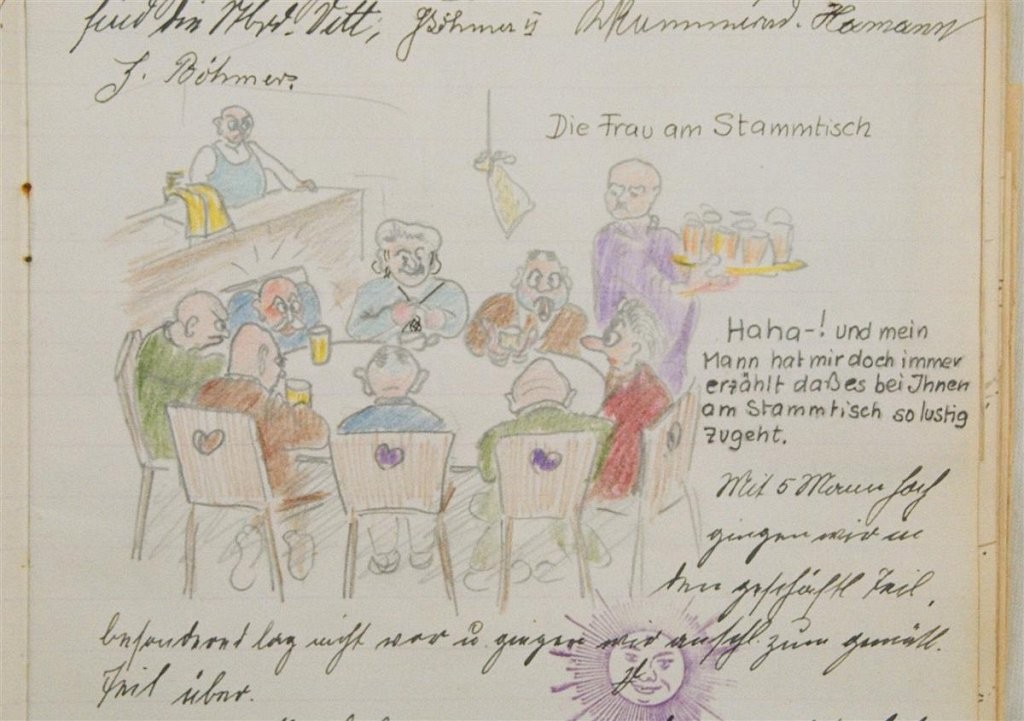 sind die Kbrd. Vett, G Böhmer u Hamann
H. Böhmer.
Die Frau am Stammtisch
Haha-! und mein
Mann hat mir doch immer
erzählt daß es bei Ihnen
am Stammtisch so lustig
zugeht.
Mit 5 Mann hoch
gingen wir in
den geschäftl Teil,
besonderes lag nicht vor u. gingen wir anschl. zum gemütl.
Teil über.